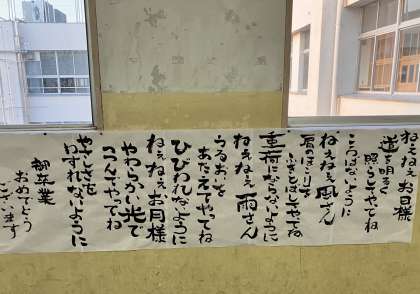 ねぇねぇお日様
道を明るく
照らしてやってね
ころばないように
ねぇねぇ風さん
肩のほこりを
ふきとばしてやってね
重荷にならないように
ねぇねぇ雨さん
うるおいを
あたえてやってね
ひびわれないように
ねぇねぇお月様
やわらかい光で
つつんでやってね
やさしさを
わすれないように
御卒業
おめでとう
ございます